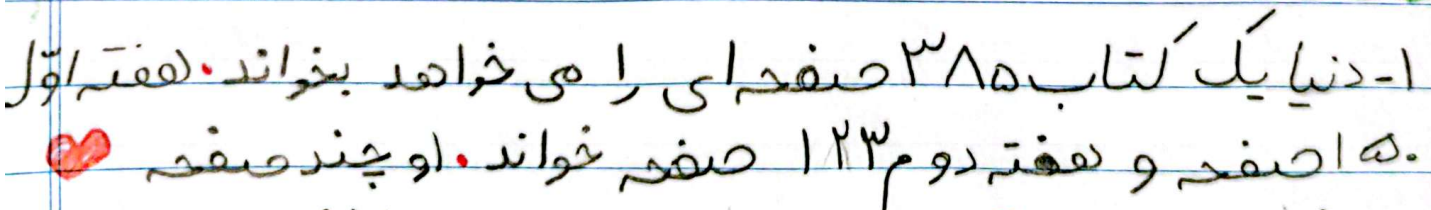 ۱- دنیا یک کتاب ۳۸۵ صفحه ای را می خواهد بخواند. هفته اوّل
۱۵۰ صفحه و هفته دوم ۱۲۳ صفحه خواند. او چند صفحه